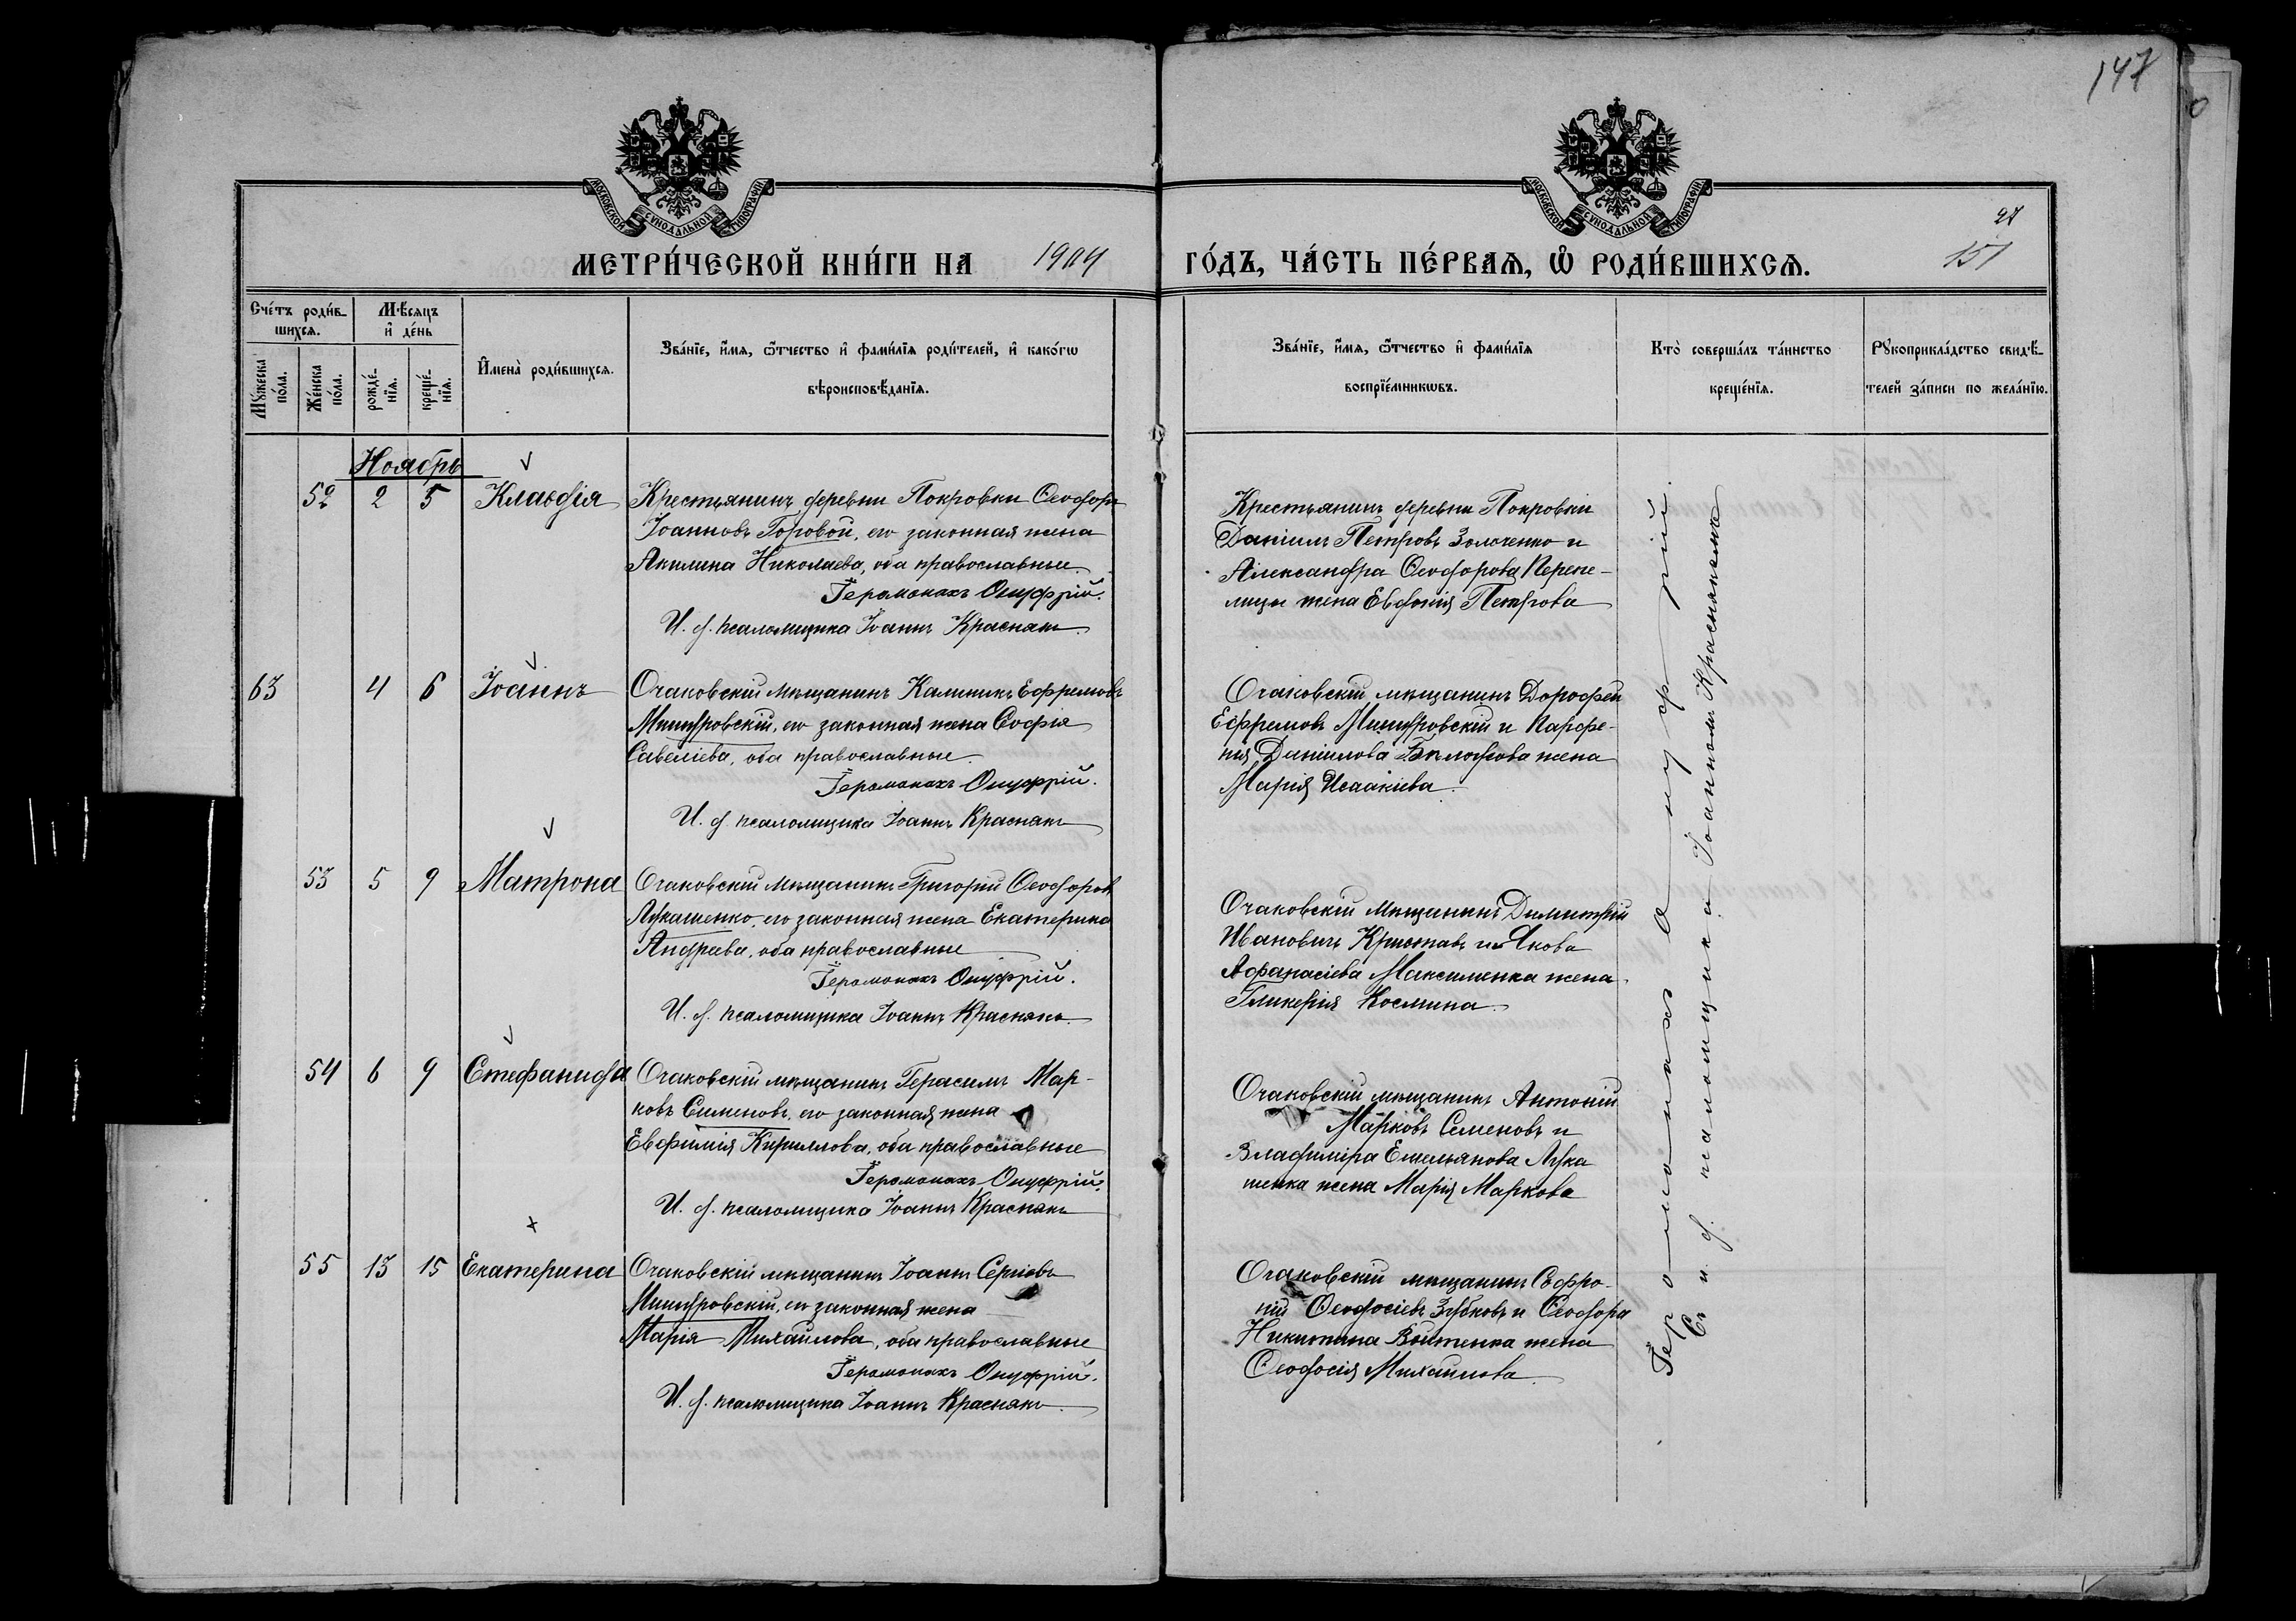 147
МОСКОВСКОЙ СѴНОДАЛЬНОЙ ТИПОГРАФІИ
МОСКОВСКОЙ СѴНОДАЛЬНОЙ ТИПОГРАФІИ
97
МЕТРИ́ЧЕСКОЙ КНИ́ГИ НА 1904
ГО́ДЪ, ЧА́СТЬ ПЕ́РВАѦ, Ѡ РОДИ́ВШИХСѦ.
151
Сче́тъ роди́в-
шихсѧ.
Мꙋ́жеска
по́ла.
Же́нска
по́ла.
Мѣ́сяцъ
и҆ де́нь
рожде́-
нїѧ.
креще́-
нїѧ.
И҆мена̀ роди́вшихсѧ.
Зва́нїе, и҆́мѧ, ѻ҆́тчество и҆ фами́лїѧ роди́телей, и҆ како́гѡ
вѣроисповѣ́данїѧ.
Зва́нїе, и҆́мѧ, ѻ҆́тчество и҆ фами́лїѧ
воспрїе́мникѡвъ.
Кто̀ соверша́лъ та́инство
креще́нїѧ.
Рꙋкоприкла́дство свидѣ́-
телей за́писи по жела́нїю.
Ноябрь
52 2 5 Клавдія
Крестьянинъ деревни Покровки Ѳеодоръ
Іоанновъ Горовой, его законная жена
Акилина Николаева, оба православные
Іеромонахъ Онуфрій.
И. д. псаломщика Іоаннъ Краснякъ
Крестьянинъ деревни Покровки
Даніилъ Петровъ Золоченко и
Александра Ѳеодорова Перепе-
лицы жена Евдокія Петрова
63 4 6 Іоаннъ
Очаковскій мѣщанинъ Калиникъ Ефремовъ
Мишуровскій, его законная жена Софья
Савеліева, оба православные
Іеромонахъ Онуфрій.
И. д. псаломщика Іоаннъ Краснякъ
Очаковскій мѣщанинъ Дорофей
Ефремовъ Мишуровскій и Парфе-
нія Даніилова жена
Марія Исаакіева
53 5 9 Матрона
Очаковскій мѣщанинъ Григорій Ѳеодоровъ
Лукашенко, его законная жена Екатерина
Андреева, оба православные
Іеромонахъ Онуфрій.
И. д. псаломщика Іоаннъ Краснякъ
Очаковскій мѣщанинъ Димитрій
Ивановичъ и Якова
Афанасіева Максименка жена
Гликерія Космина
54 6 9 Стефанида
Очаковскій мѣщанинъ Герасимъ Мар-
ковъ Сименовъ, его законная жена
Евфимія Кириллова, оба православные
Іеромонахъ Онуфрій.
И. д. псаломщика Іоаннъ Краснякъ
Очаковскій мѣщанинъ Антоній
Марковъ Семеновъ и
Владиміра Емельянова Лука
шенка жена Марія Маркова
55 13 15 Екатерина
Очаковскій мѣщанинъ Іоаннъ Сергіевъ
Мишуровскій, его законная жена
Марія Михайлова, оба православные
Іеромонахъ Онуфрій.
И. д. псаломщика Іоаннъ Краснякъ
Очаковскій мѣщанинъ Софро-
ній Ѳеодосіевъ Зубковъ и Ѳеодора
Никитина Войтенка жена
Ѳеодосія Михайлова
Іеромонахъ Онуфрій
Съ и. д. псаломщика Іоанномъ Краснякомъ